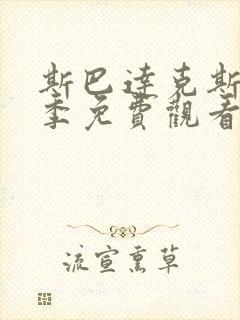 斯巴达克斯
季免費觀看
流宣熏草